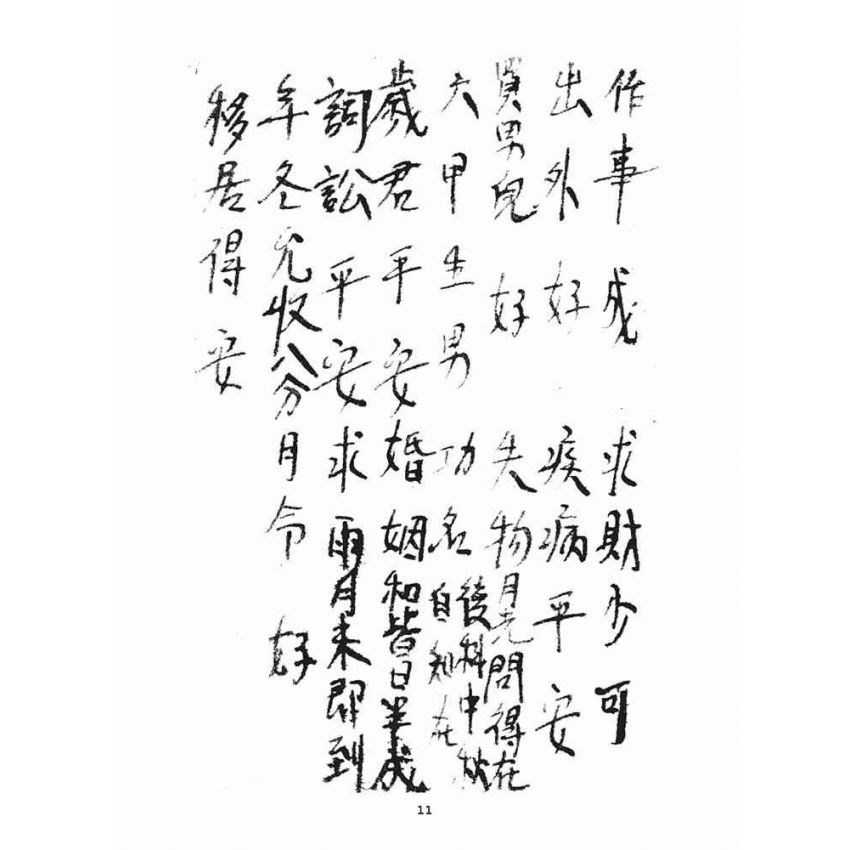 作事成 求財少可
出外好 疾病平安
買男兒 好 失物月光問得在
六甲生男 功名後科中 自知在
歲君平安 婚姻和皆日半成
詞訟平安 求雨月末即到
年冬允收八分 月令 好
移居得安
11